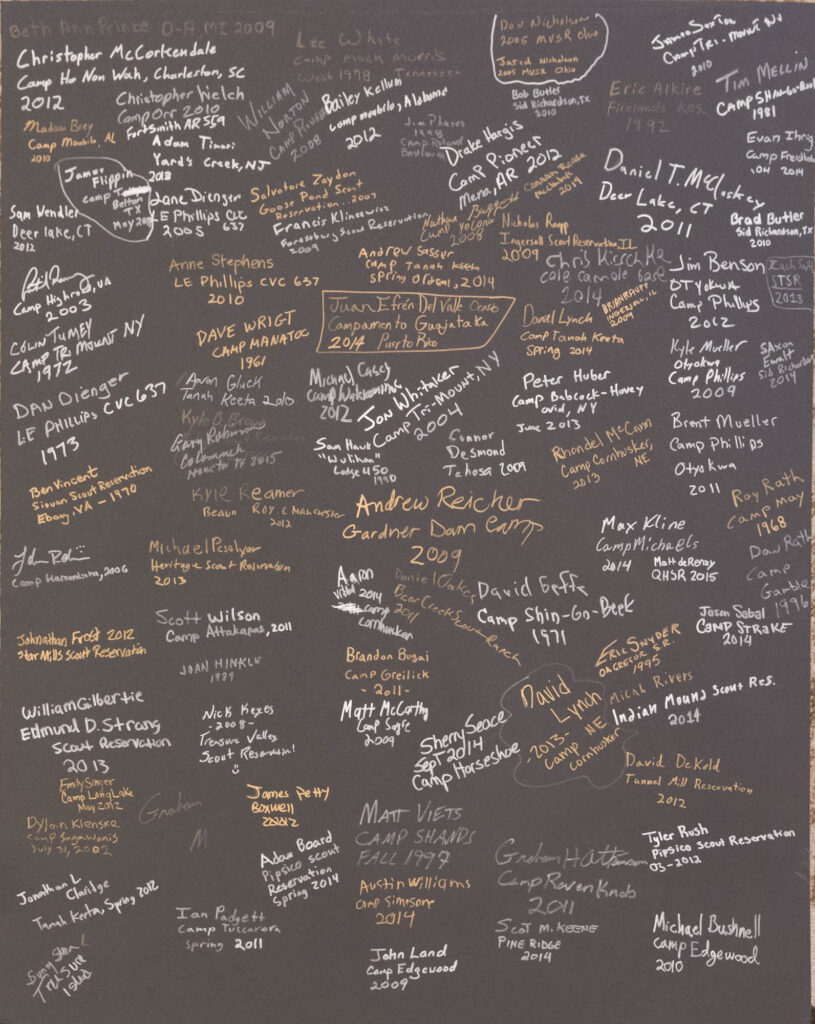 Beth Ann Prince O-A, MI 2009
Christopher McCorkendale
Camp Ho Non Wah, Charleston, SC
2012
Lee White
Camp Mack Morris
West 1978 Tennessee
Don Nicholson
2005 MVSR Ohio
Jared Nicholson
2005 MVSR Ohio
James Sexton
Camp Tri-Mount NY
2010
Christopher Welch
Camp Orr 2010
Fort Smith AR 559
William
Norton
Camp Pioneer
2008
Bailey Kellum
Camp Maubila, Alabama
2012
Bob Butler
Sid Richardson, TX
2010
Eric Alkire
Firelands Res.
1992
Tim Mellin
1981
Madison Brey
Camp Maubila, AL
2010
Adam Timari
Yard's Creek, NJ
2018
Jim Phares
Camp Roland
Drake Hargis
Camp Pioneer
Mena, AR 2012
Evan Ihrig
2014
James
Flippin
Camp
Belton
TX
May
Daniel T. McCloskey
Deer Lake, CT
2011
Sam Vendler
Deer lake, CT
2012
Jane Dienger
LE Phillips CVC
2005 637
Salvatore Zaydon
Goose Pond Scout
Reservation.. 2007
Francis Klincewicz
Forestburg Scout Reservation
2009
Nathan Buggett
Camp
2008
2014
Nicholas Raupp
Ingersoll Scout Reservation, IL
2009
Brad Butler
Sid Richardson, TX
2010
Camp Highroad, VA
2003
Anne Stephens
LE Phillips CVC 637
2010
Andrew Sasser
Camp Tanah Keeta
Spring Ordeal, 2014
Chris
2014
Jim Benson
OTYOKWA
Camp Phillips
2012
STSR
2013
Colin Tumey
Camp Tri Mount NY
1972
Dave Wrigt
Camp Manatoc
1961
Juan Efrén Del Valle
Campamento Guajataka
2014 Puerto Rico
Daniel Lynch
Camp Tanah Keeta
Spring 2014
Brian Raupp
Ingersoll, IL
2009
Kyle Mueller
Otyokwa
Camp Phillips
2009
Saxon
Ewalt
Sid Richardson
2014
Dan Dienger
LE Phillips CVC 637
1973
Aaron Gluck
Tanah Keeta 2010
Michael Cases
2012
Jon Whitaker
Camp Tri-Mount, NY
2004
Peter Huber
Camp Babcock-Hovey
Ovid, NY
June 2013
Kyle B.
Gary Robinson
2015
Sam Hawk
"Wulihan"
Lodge 450
1990
Connor
Desmond
Tahosa 2009
Rhondel McCann
Camp Cornhusker,
2013 NE
Brent Mueller
Camp Phillips
Otyokwa
2011
Ben Vincent
Siouan Scout Reservation
Ebony, VA - 1970
Kyle Reamer
2012
Andrew Reicher
Gardner Dam Camp
2009
Roy Rath
Camp May
1968
Camp Harmonima, 2006
Michael
Heritage Scout Reservation
2013
Max Kline
Camp Michaels
2014
Matt deRenzy
QHSR 2015
Dan Rath
Camp
Gamble
1996
Aaron
Vidal 2014
Camp
Cornhusker
Daniel Oakes
Bear Creek Scout Ranch
2011
David Geffe
Camp Shin-Go-Beek
1971
Jason Sabal
Camp Strake
2014
Johnathan Frost 2012
Star Mills Scout Reservation
Scott Wilson
Camp Attakapas, 2011
Joan Hinkle
1989
Brandon Bugai
Camp Greilick
-2011-
Eric Snyder
Oakcrest S.R.
1995
William Gilbertie
Edmund D. Strang
Scout Reservation
2013
Nick Keyes
-2008-
Treasure Valley
Scout Reservation!
Matt McCarthy
Camp Sayre
2009
Sherry Seace
Sept 2014
Camp Horseshoe
David
Lynch
-2013-
Camp NE
Cornhusker
Micah Rivers
Indian Mound Scout Res.
2014
Emily Singer
Camp Lang Lake
May 2012
David DeKold
Tunnel Mill Reservation
2012
Dylan Klenske
Camp Ingawanis
July 31, 2002
Graham
M
James Petty
Boxwell
Matt Viets
Camp Shands
Fall 1997
Tyler Rush
Pipsico Scout Reservation
03-2012
Adam Board
Pipsico Scout
Reservation
Spring 2014
Graham H
Camp Raven Knob
2011
Jonathan L
Claridge
Tanah Keeta, Spring 2012
Austin Williams
2014
Ian Padgett
Camp Tuscarora
Spring 2011
Scot M. Keene
Pine Ridge
2014
Michael Bushnell
Camp Edgewood
2010
John Land
Camp Edgewood
2009
Treasure